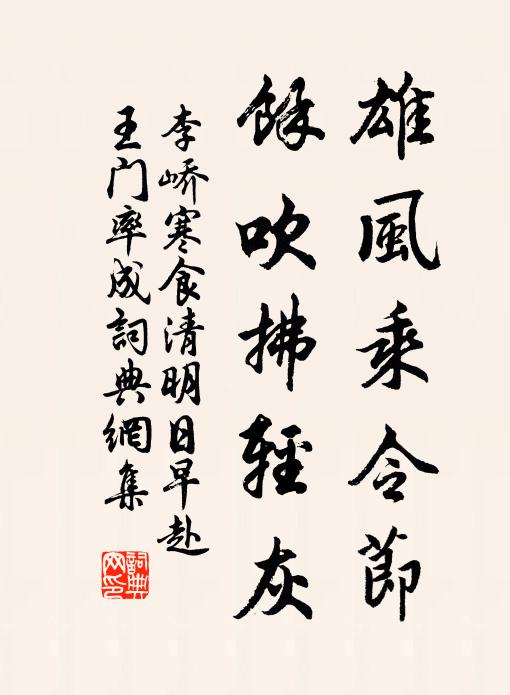 雄風乘令節
餘吹拂輕灰
李嶠寒食清明日早赴
王门率成詞典網集
詞典网印